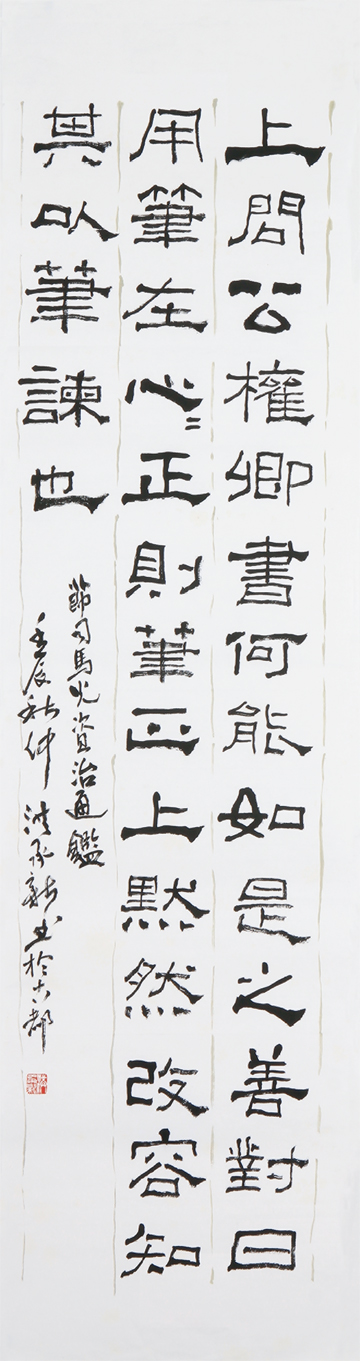 上問公權卿書何能如是之善對曰
用筆在心〻正則筆正上默然改容知
其以筆諫也
節司馬光資治通鑑
壬辰秋仲洪承新書於古都